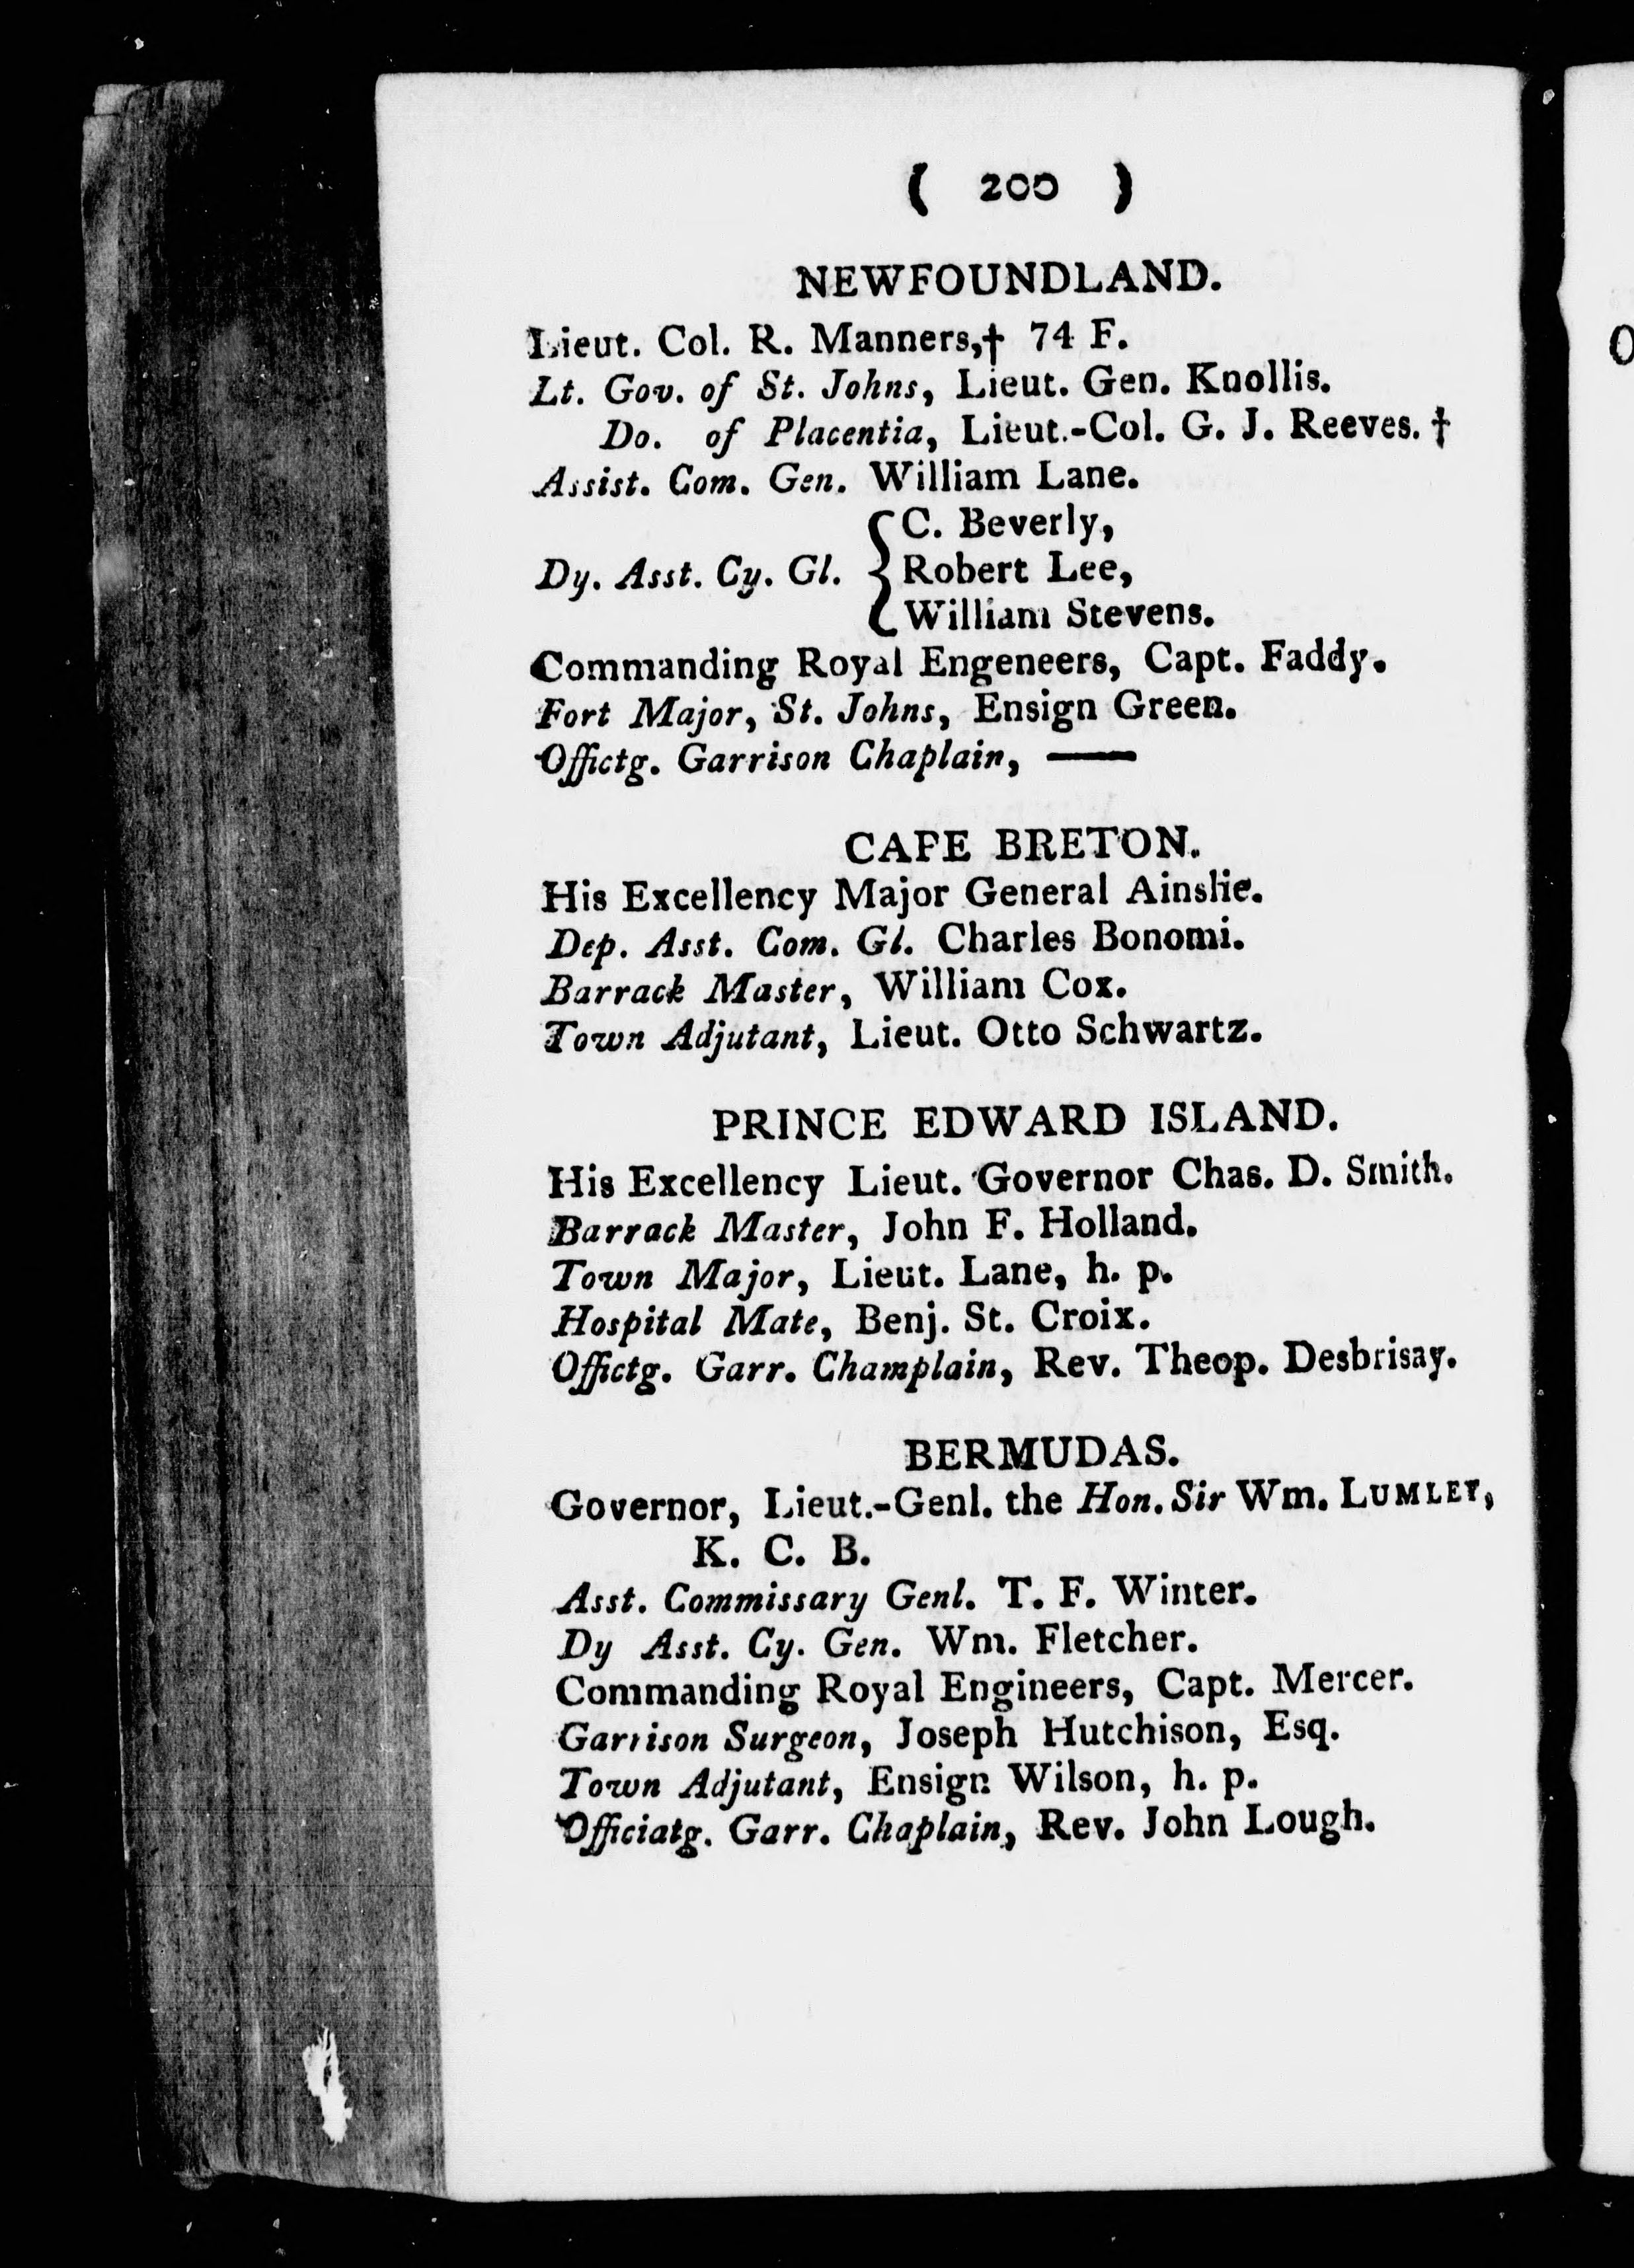 ( 200 )
NEWFOUNDLAND.
Lieut. Col. R. Manners,† 74 F.
Lt. Gov. of St. Johns, Lieut. Gen. Knollis.
Do. of Placentia, Lieut.-Col. G. J. Reeves. †
Assist. Com. Gen. William Lane.
C. Beverly,
Dy. Asst. Cy. Gl. { Robert Lee,
William Stevens.
Commanding Royal Engeneers, Capt. Faddy.
Fort Major, St. Johns, Ensign Green.
Offictg. Garrison Chaplain, ——
CAPE BRETON.
His Excellency Major General Ainslie.
Dep. Asst. Com. Gl. Charles Bonomi.
Barrack Master, William Cox.
Town Adjutant, Lieut. Otto Schwartz.
PRINCE EDWARD ISLAND.
His Excellency Lieut. Governor Chas. D. Smith.
Barrack Master, John F. Holland.
Town Major, Lieut. Lane, h. p.
Hospital Mate, Benj. St. Croix.
Offictg. Garr. Champlain, Rev. Theop. Desbrisay.
BERMUDAS.
Governor, Lieut.-Genl. the Hon. Sir Wm. LUMLEY,
K. C. B.
Asst. Commissary Genl. T. F. Winter.
Dy Asst. Cy. Gen. Wm. Fletcher.
Commanding Royal Engineers, Capt. Mercer.
Garrison Surgeon, Joseph Hutchison, Esq.
Town Adjutant, Ensign Wilson, h. p.
Officiatg. Garr. Chaplain, Rev. John Lough.